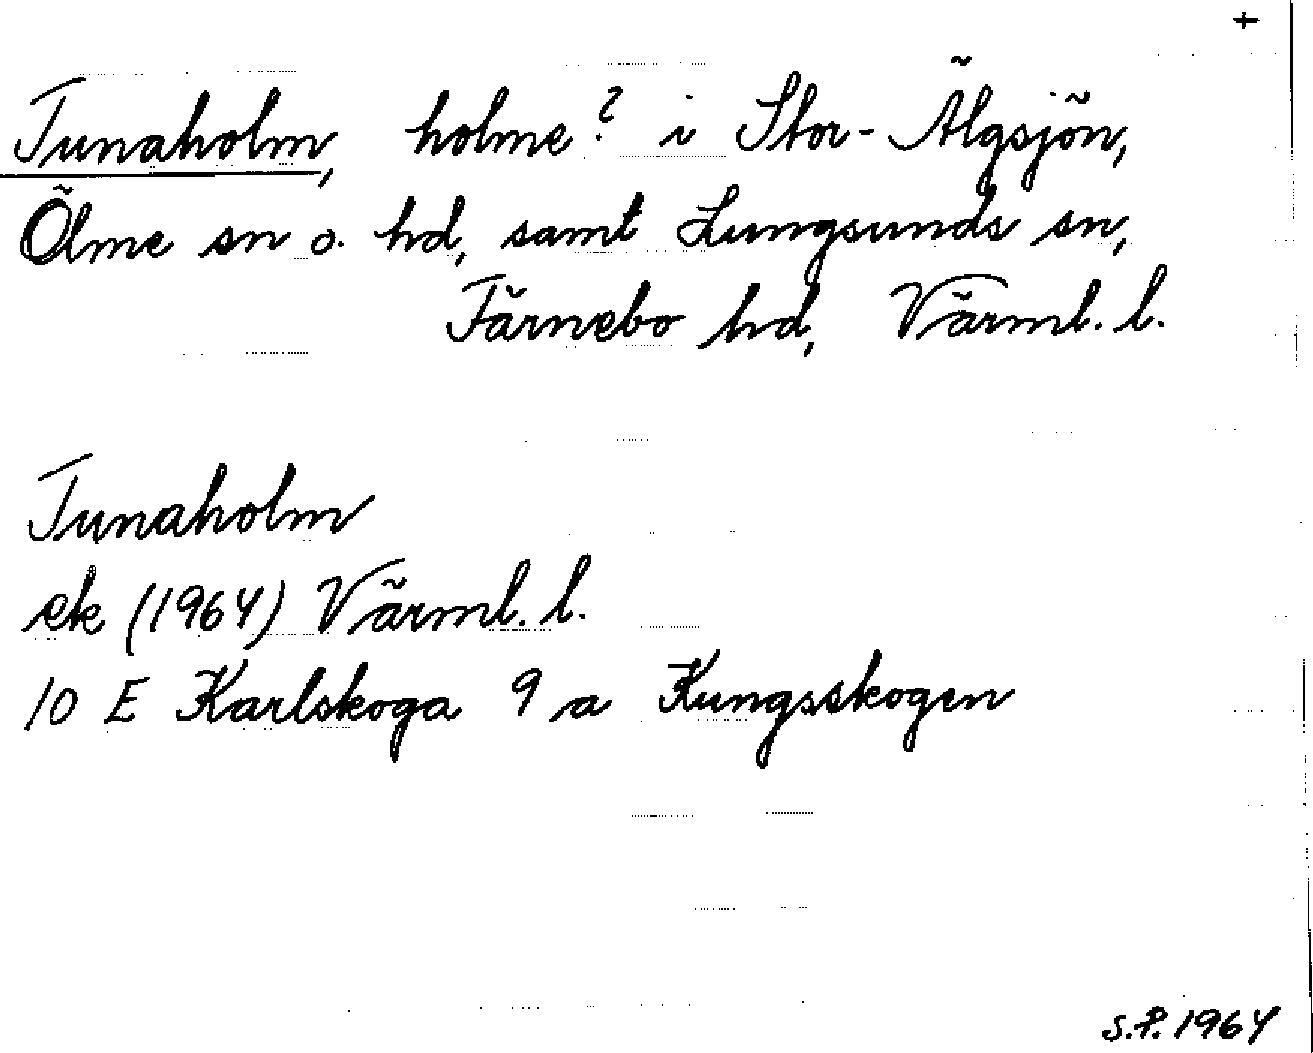 +
Tunaholm, holme? i Stor-Älgsjön,
Ölme sn o. hd, samt Lungsunds sn,
Färnebo hd, Värml. l.
Tunaholm
ek (1964) Värml. l.
10 E Karlskoga 9 a Kungsskogen
S.P. 1964